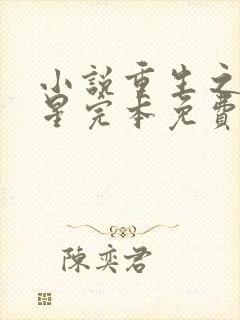 小説重生之
星完本免費
陳奕君